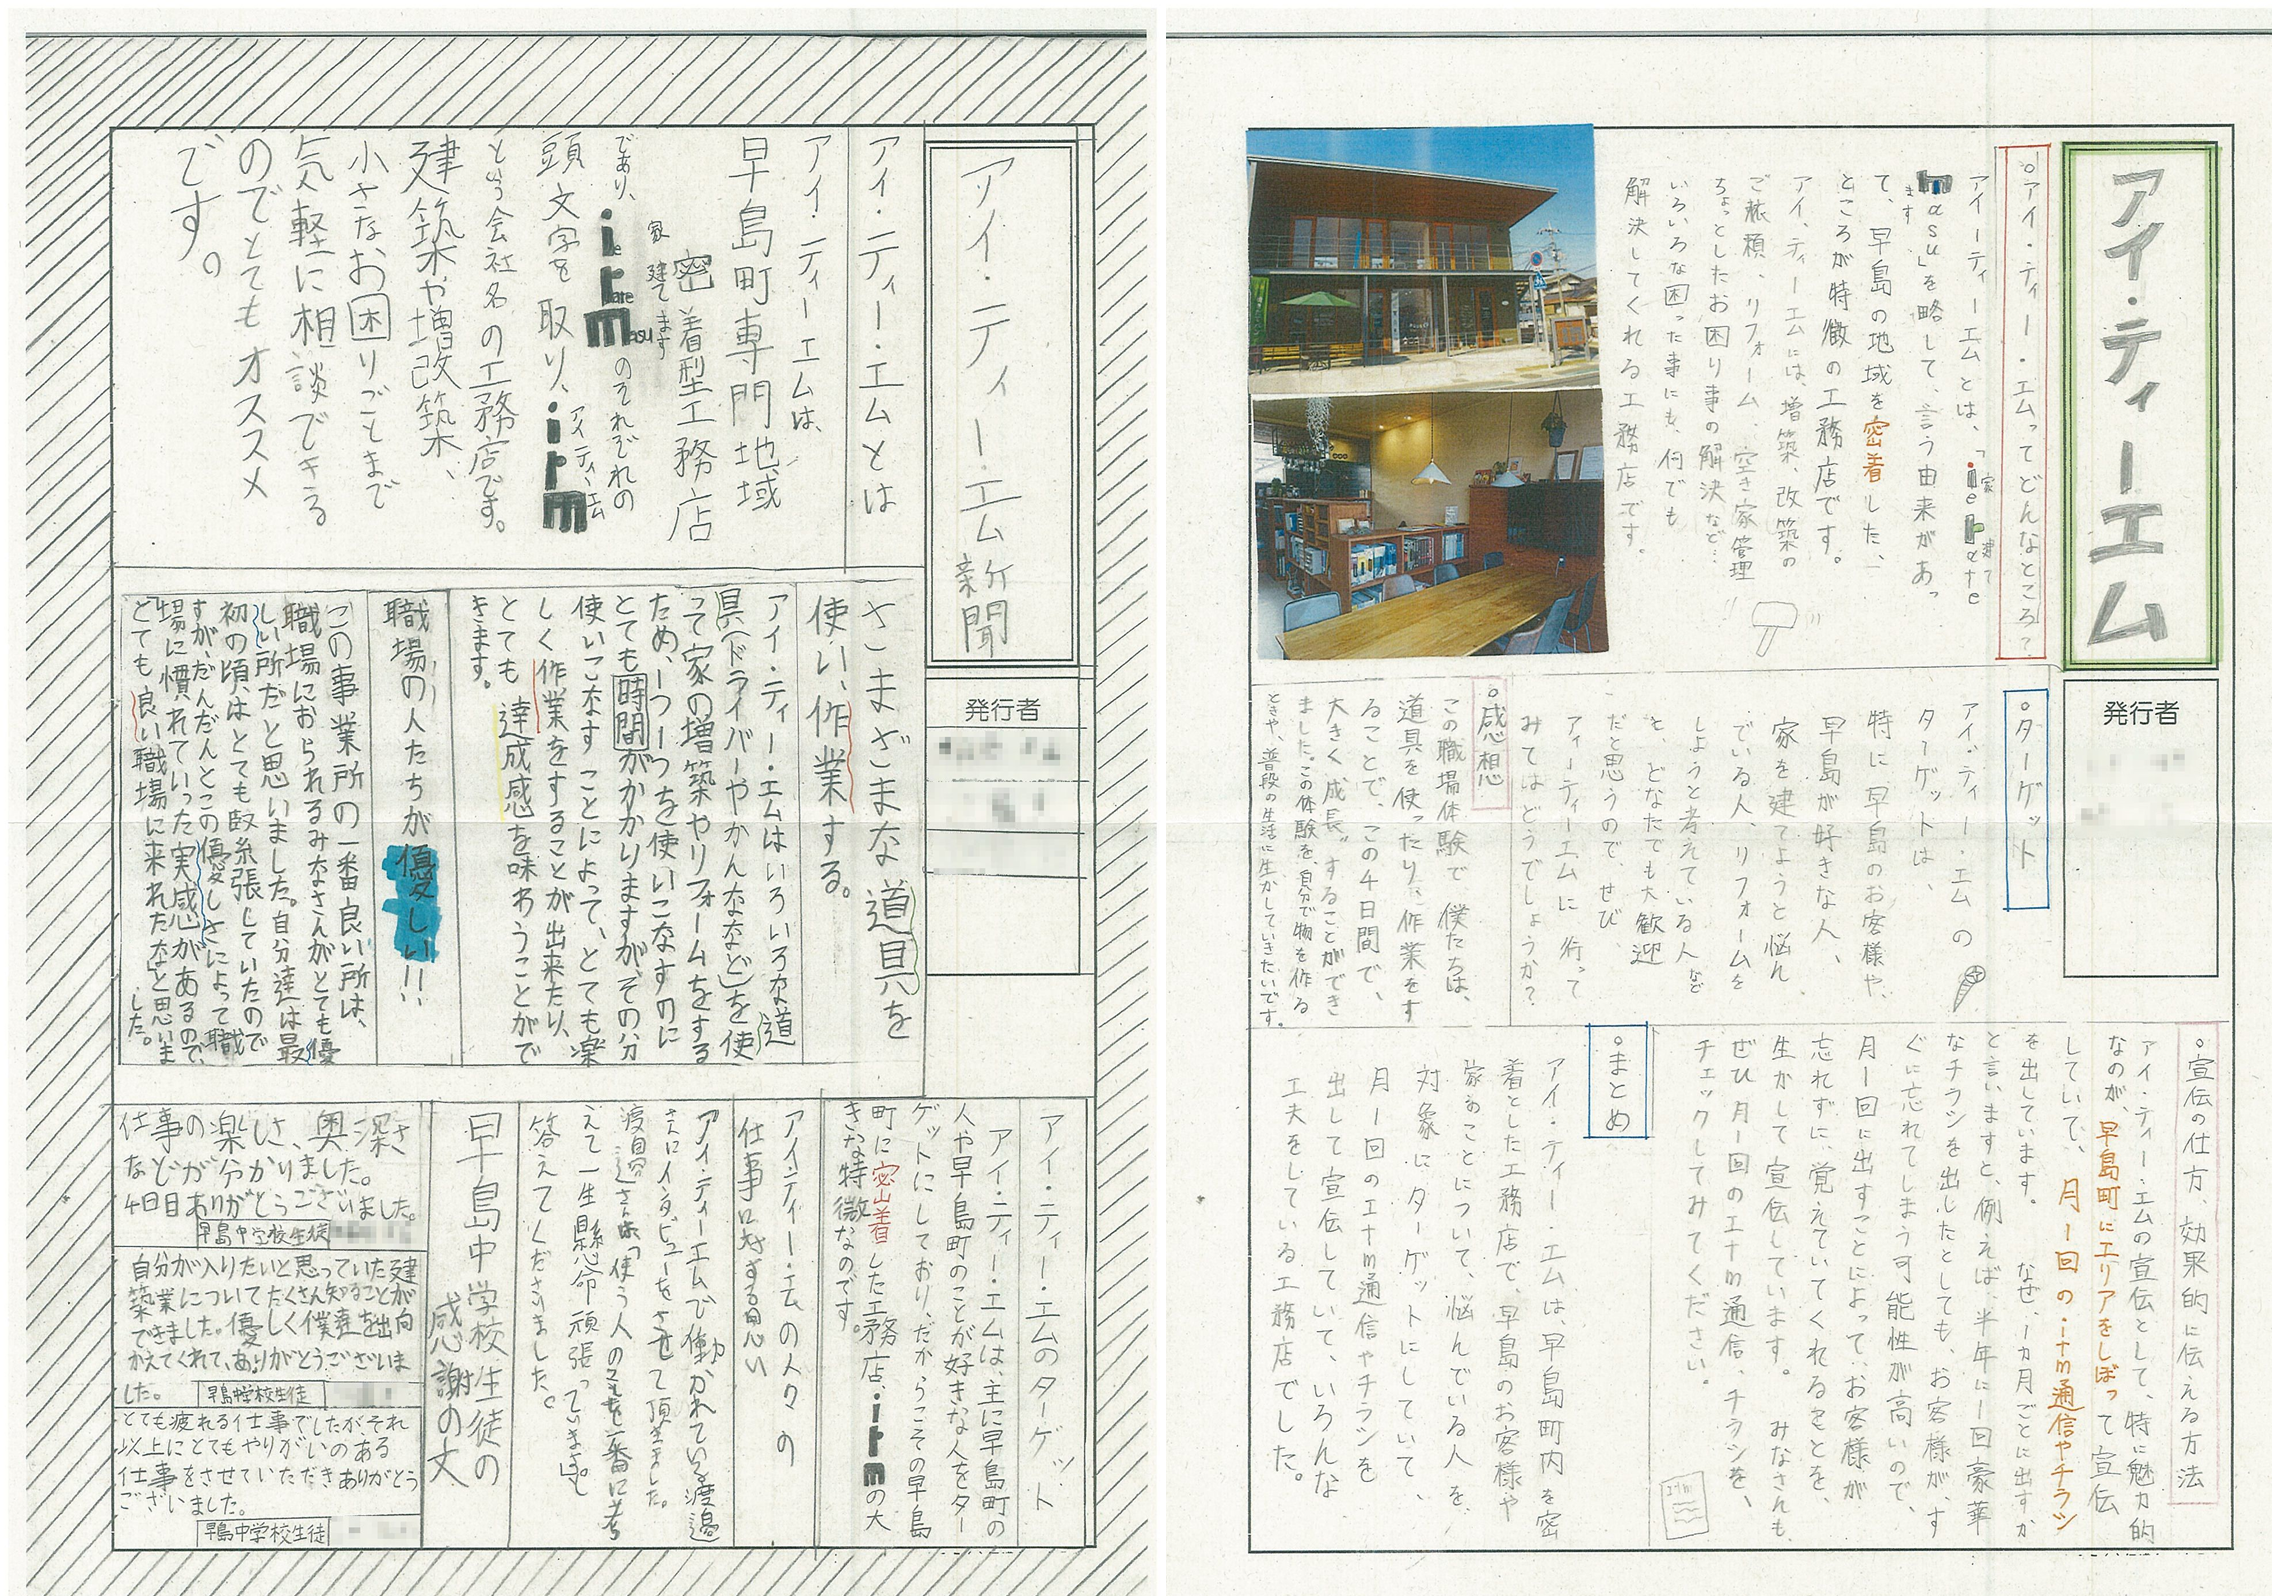 アイ・ティー・エム新聞
発行者
アイ・ティー・エムとは
アイ・ティーエムは、
早島町専門地域
密着型工務店
家 建てます
であり、ie tate masu のそれぞれの
頭文字を取り、itm
アイ、ティ、エム
という会社名の工務店です。
建築や増改築、
小さなお困りごとまで
気軽に相談できる
のでとてもオススメ
です。
さまざまな道具を
使い、作業する。
アイ・ティー・エムはいろいろな道
具(ドライバーやかんななど)を使
って家の増築やリフォームをする
ため、一つ一つを使いこなすのに
とても時間がかかりますがその分
使いこなすことによって、とても楽
しく作業をすることが出来たり、
とても達成感を味わうことがで
きます。
職場の人たちが優しい!!
この事業所の一番良い所は、
職場におられるみなさんがとても優
しい所だと思いました。自分達は最
初の頃はとても緊張していたので
すが、だんだんとこの優しさによって職
場に慣れていった実感があるので、
とても良い職場に来れたなと思いま
した。
アイ・ティー・エムのターゲット
アイ・ティー・エムは、主に早島町の
人や早島町のことが好きな人をター
ゲットにしており、だからこその早島
町に密着した工務店、itmの大
きな特徴なのです。
アイ・ティー・エムの人々の
仕事に対する思い
アイ・ティーエムで働かれている渡邉
さんにインタビューをさせて頂きました。
渡邉さんは「使う人のことを一番に考
えて一生懸命頑張っています。」と
答えてくださいました。
早島中学校生徒の
感謝の丈
仕事の楽しさ、奥深さ
などが分かりました。
4日日ありがとうございました。
早島中学校生徒
自分が入りたいと思っていた建
築業についてたくさん知ることが
できました。優しく僕達を出向
かえてくれて、ありがとうございま
した。
早島中学校生徒
とても疲れる仕事でしたが、それ
以上にとてもやりがいのある
仕事をさせていただきありがとう
ございました。
早島中学校生徒
アイ・ティーエム
発行者
○アイ・ティー・エムってどんなところ?
アイーティーエムとは、「ie tate
家 建て
masu」を略して、言う由来があっ
ます
て、早島の地域を密着した、
ところが特徴の工務店です。
アイ、ティーエムには、増築、改築の
ご依頼、リフォーム、空き家管理
ちょっとしたお困り事の解決など…
いろいろな困った事にも、何でも
解決してくれる工務店です。
○ターゲット
アイ・ティー・エムの
ターゲットは、
特に早島のお客様や、
早島が好きな人、
家を建てようと悩ん
でいる人、リフォームを
しようと考えている人など
と、どなたでも大歓迎
だと思うので、ぜひ
アィーティーエムに行って
みてはどうでしょうか?
○感想
この職場体験で僕たちは、
道具を使ったり、作業をす
ることで、この4日間で、
大きく"成長"することができ
ました。この体験を、自分で物を作る
ときや、普段の生活に生かしていきたいです。
○宣伝の仕方、効果的に伝える方法
アイ・ティー・エムの宣伝として、特に魅力的
なのが、早島町にエリアをしぼって宣伝
していて、月一回のitm通信やチラシ
を出しています。 なぜ、1ヵ月ごとに出すか
と言いますと、例えば、半年に一回豪華
なチラシを出したとしても、お客様が、す
ぐに忘れてしまう可能性が高いので、
月一回に出すことによって、お客様が
忘れずに、覚えていてくれることを、
生かして宣伝しています。 みなさんも、
ぜひ月一回のitm通信、チラシを、
チェックしてみてください。
○まとめ
アイ・ティー・エムは、早島町内を密
着とした工務店で、早島のお客様や
家のことについて、悩んでいる人を、
対象にターゲットにしていて、
月1回のitm通信やチラシを
出して宣伝していて、いろんな
工夫をしている工務店でした。